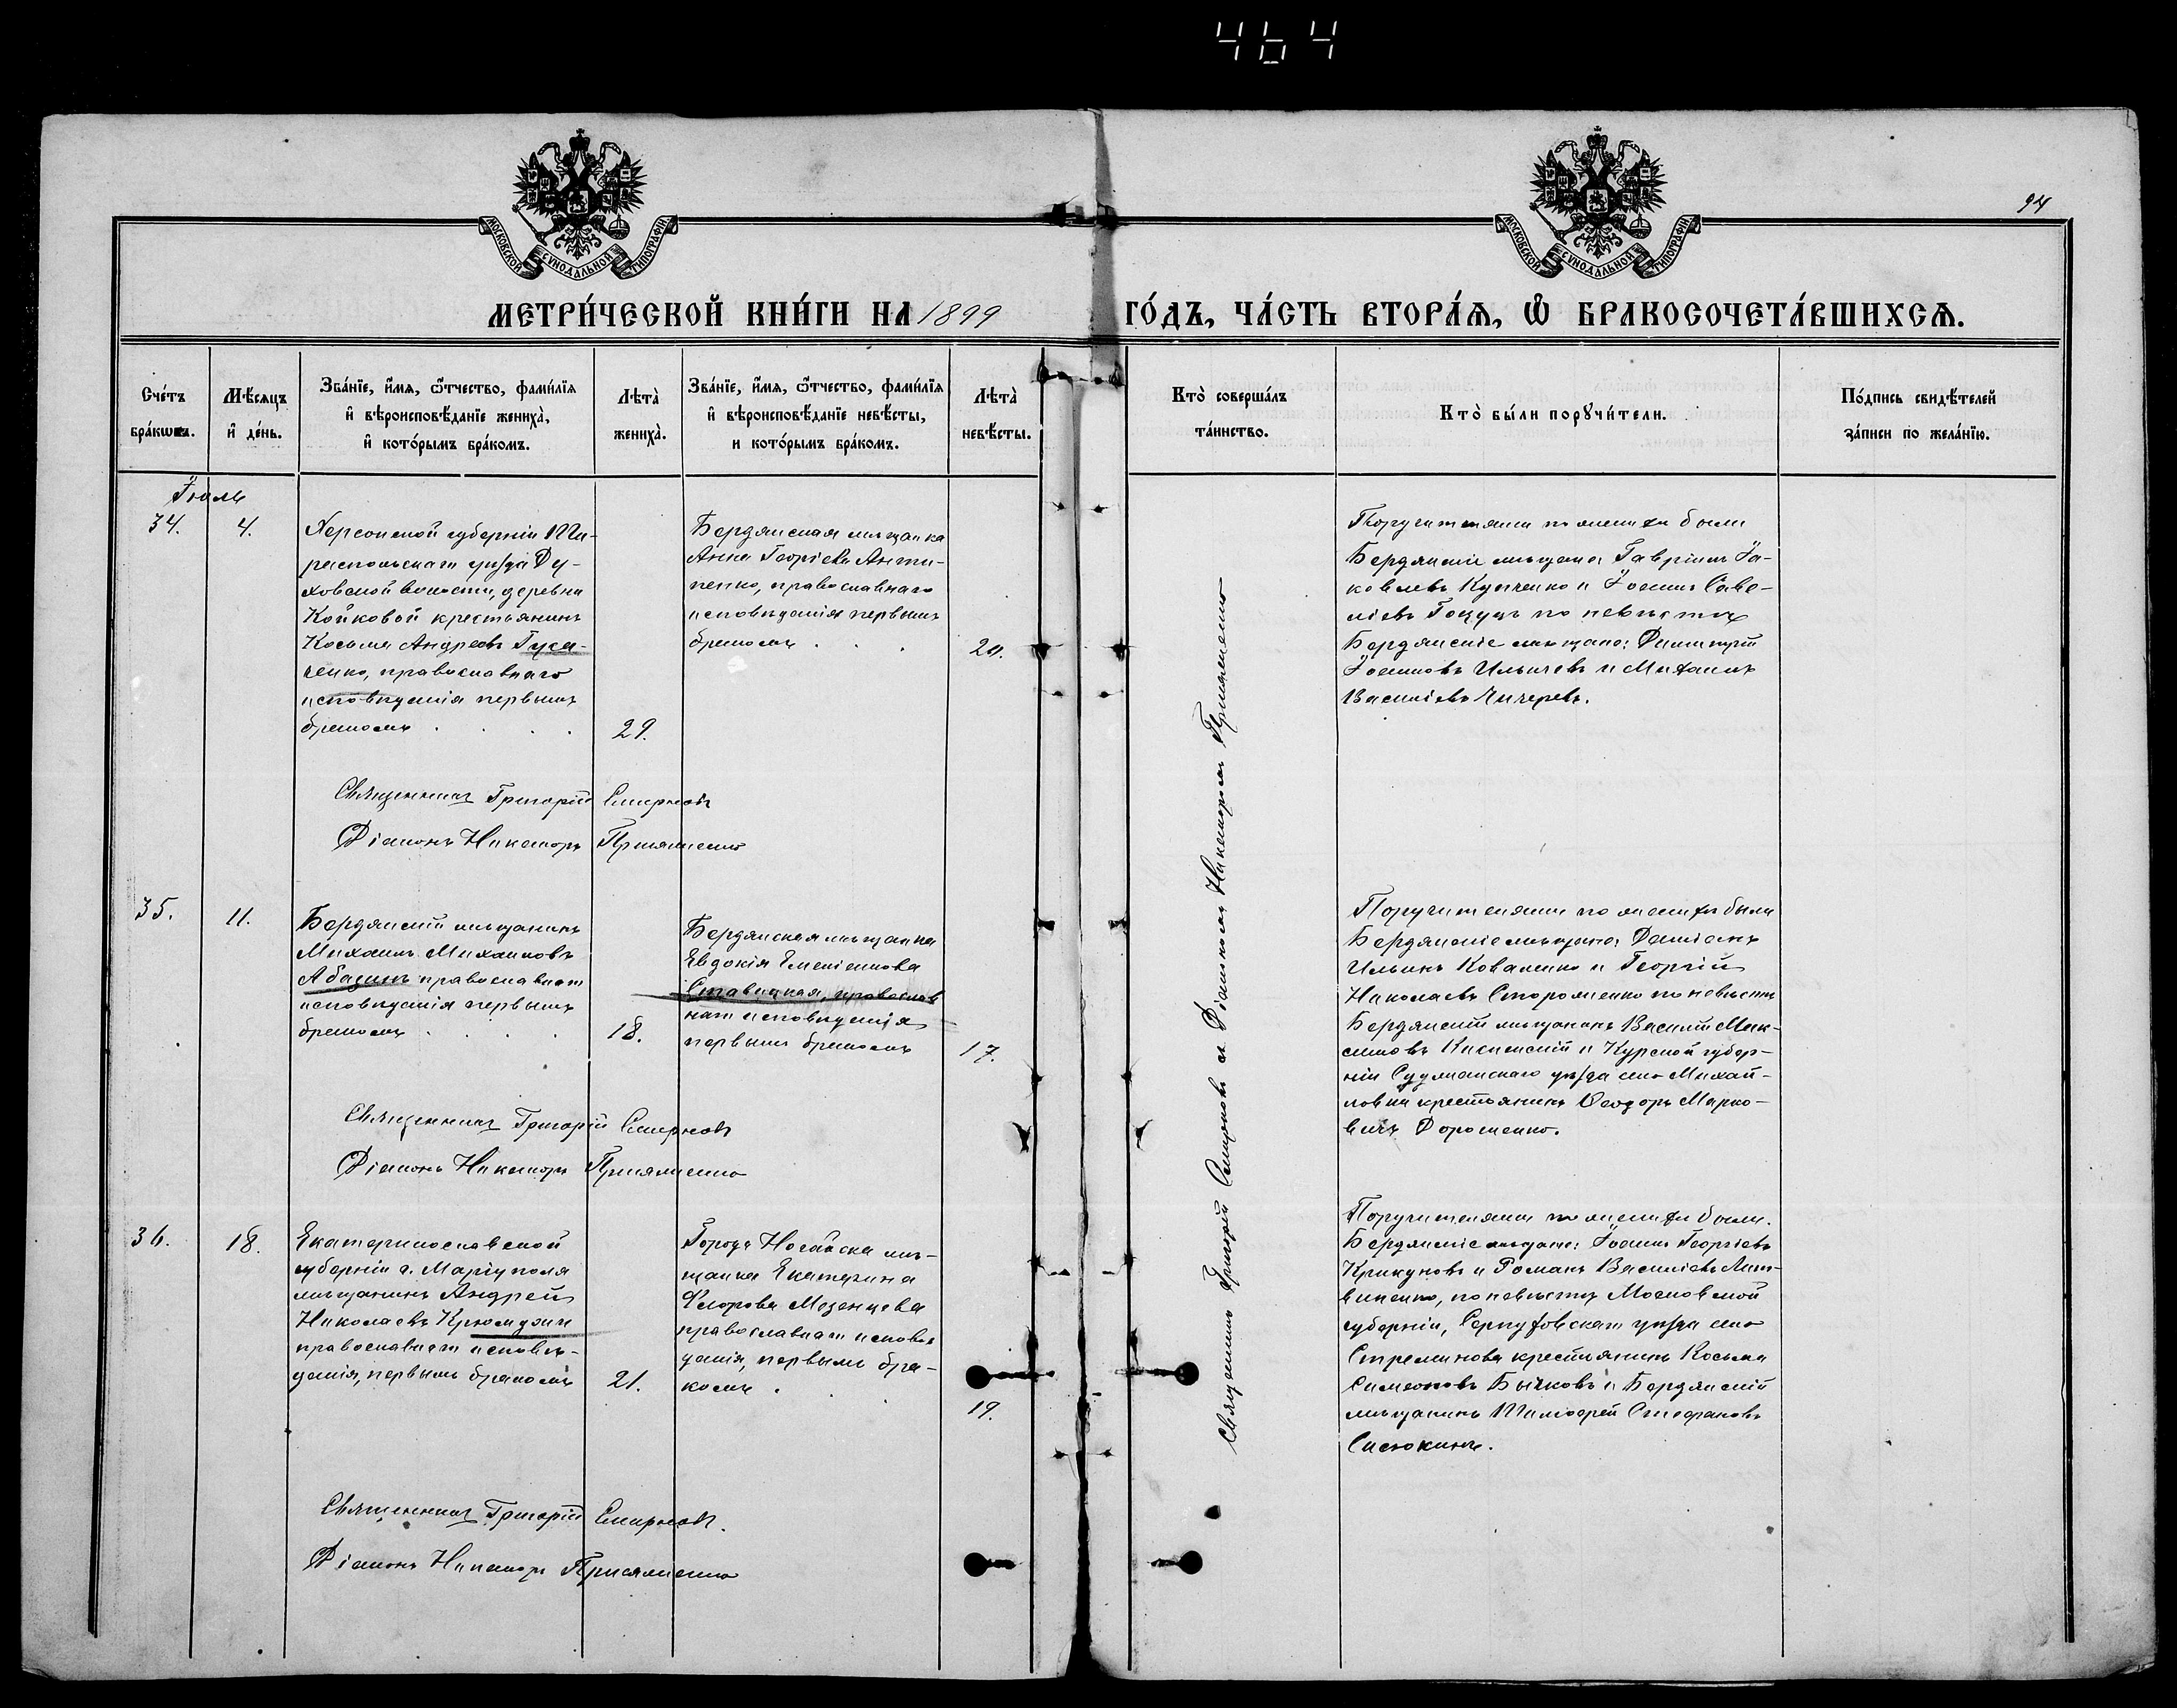 464
94
МОСКОВСКОЙ СѴНОДАЛЬНОЙ ТИПОГРАФІИ
МОСКОВСКОЙ СѴНОДАЛЬНОЙ ТИПОГРАФІИ
МЕТРИ́ЧЕСКОЙ КНИ́ГИ НА 1899 ГО́ДЪ, ЧА́СТЬ ВТОРА́Ѧ, Ѡ҆ БРАКОСОЧЕТА́ВШИХСѦ.
Сче́тъ
бра́кωвъ.
Мѣ́сяцъ
и҆ де́нь.
Зва́нїе, и҆́мя, ѻ҆́тчество, фами́лїя
и҆ вѣроисповѣ́данїе жениха̀,
и҆ кото́рымъ бра́комъ.
Лѣта̀
жениха̀.
Зва́нїе, и҆́мя, ѻ҆́тчество, фами́лїя
и҆ вѣроисповѣ́данїе невѣ́сты,
и кото́рымъ бра́комъ.
Лѣта̀
невѣ́сты.
Кто̀ соверша́лъ
та́инство.
Кто̀ бы́ли порꙋчи́тели.
По́дпись свидѣ́телей
за́писи по жела́нїю.
Іюль
34.
4.
Херсонской губерніи Ти-
распольскаго уѣзда Ду-
ховской волости, деревни
Койковой крестьянинъ
Косьма Андреевъ Гуса-
ченко, православнаго
исповѣданія первымъ
бракомъ . . . .
29.
Бердянская мѣщанка
Анна Георгіева Анти-
пенко, православнаго
исповѣданія первымъ
бракомъ . . .
20.
Поручителями по женихѣ были
Бердянскіе мѣщане: Гавріилъ Іа-
ковлевъ Купченко и Іоаннъ Саве-
ліевъ Гокуцъ по невѣстѣ
Бердянскіе мѣщане: Димитрій
Іоанновъ Ильичевъ и Михаилъ
Василіевъ Чичеревъ.
Священникъ Григорій Смирновъ
Діаконъ Никаноръ Присяженко
35.
11.
Бердянскій мѣщанинъ
Михаилъ Михаиловъ
Абазинъ православнаго
исповѣданія первымъ
бракомъ . . . .
18.
Бердянская мѣщанка
Евдокія Емеліанова
Ставицкая, православ
наго исповѣданія
первымъ бракомъ
17.
Поручителями по женихѣ были
Бердянскіе мѣщане: Даміанъ
Ильинъ Коваленко и Георгій
Николаевъ Стороженко по невѣстѣ
Бердянскій мѣщанинъ Василій Мак-
симовъ и Курской губер-
ніи Суджанскаго уѣзда села Михай-
ловки крестьянинъ Ѳеодоръ Марко-
вичъ Дорошенко.
Священникъ Григорій Смирновъ
Діаконъ Никаноръ Присяженко
36.
18.
Екатеринославской
губерніи г. Маріуполя
мѣщанинъ Андрей
Николаевъ Крюмджи
православнаго исповѣ-
данія, первымъ бракомъ
21.
Города Ногайска мѣ-
щанка Екатерина
Флорова Мезенцева
православнаго исповѣ
данія, первымъ бра-
комъ . .
19.
Поручителями по женихѣ были.
Бердянскіе мѣщане: Іоаннъ Георгіевъ
Крикуновъ и Романъ Василіевъ Лит-
виненко, по невѣстѣ Московской
губерніи, Серпуховскаго уѣзда села
Стремилова крестьянинъ Косьма
Симеоновъ Бычковъ и Бердянскій
мѣщанинъ Тимоѳей Стефановъ
Сисюкинъ.
Священникъ Григорій Смирновъ.
Діаконъ Никаноръ Присяженко
Священникъ Григорій Смирновъ съ Діакономъ Никаноромъ Присяженко